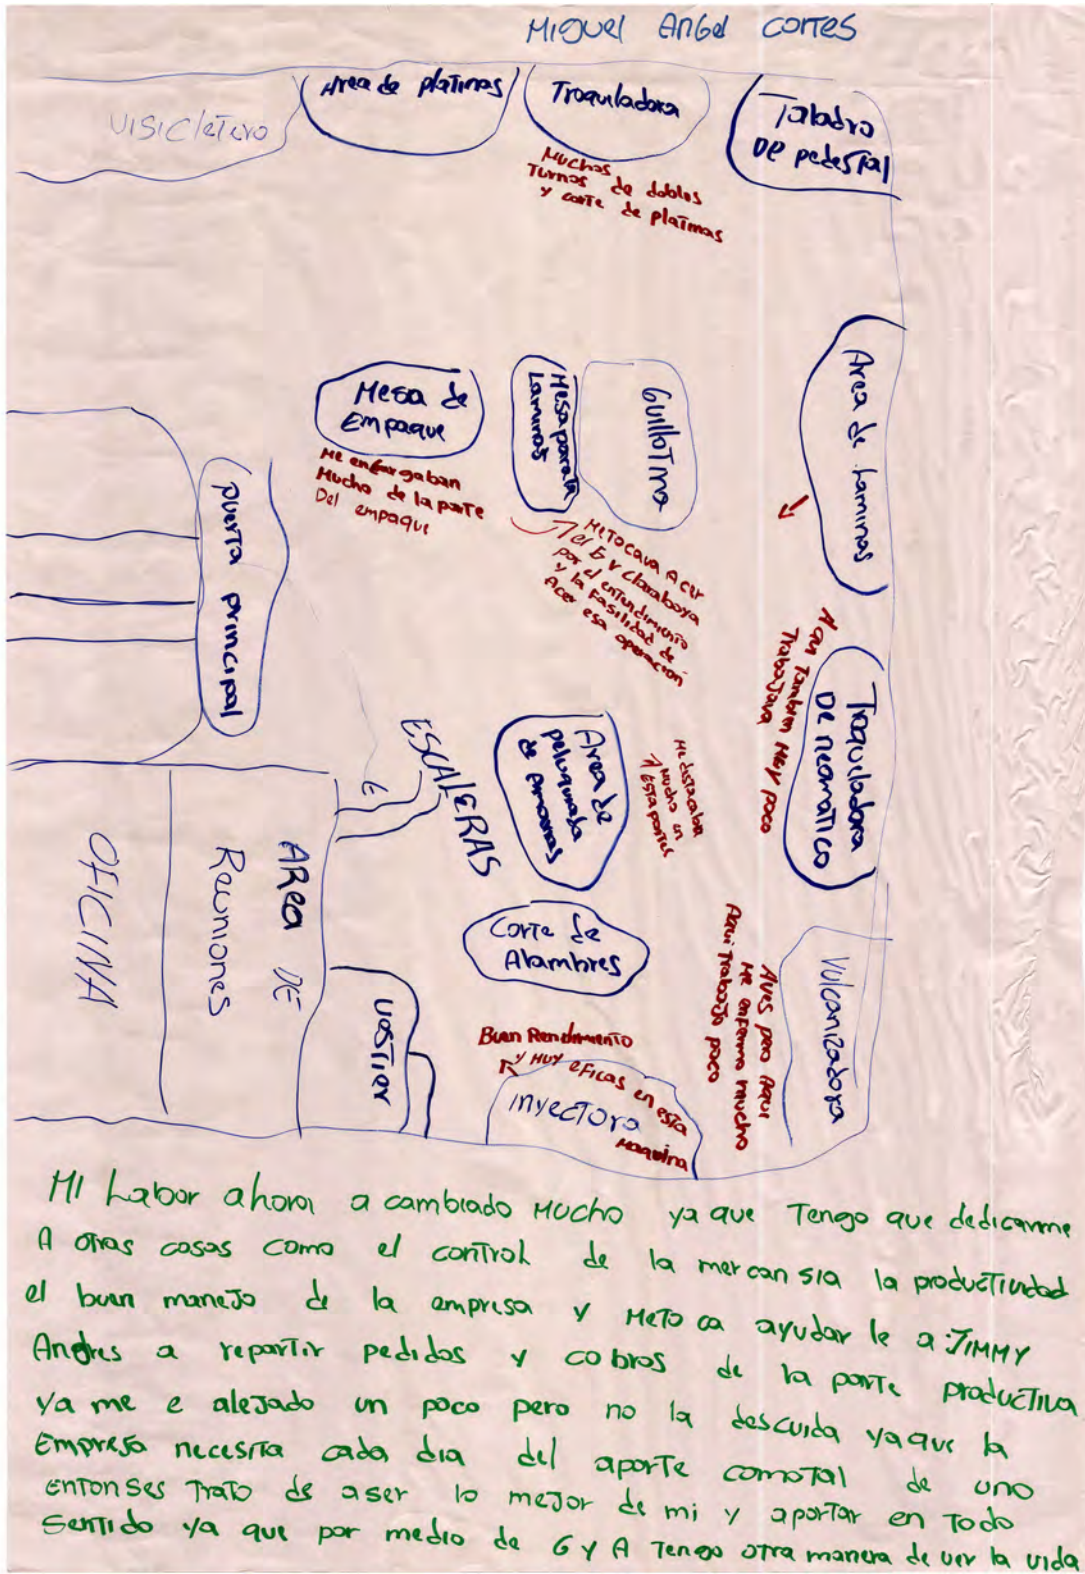 Miguel Angel Cortes
VISICleTero
Area de platinas
Troquiladora
Taladro
De pedestal
Muchos
Turnos de dobles
y corte de platinas
Mesa de
Empaque
Me encargaban
Mucho de la parte
Del empaque
Mesa para la
Laminas
Guillotina
Me Tocava Acer
el 6 y claraboya
por el entendimiento
y la Fasilidad de
Acer esa operacion
Area de Laminas
puerta principal
Troquiladora
De neomatico
Aqui Tambien Muy poco
Trabajava
ESCALERAS
E
Area de
peluquiada
de Amarras
Me destacaba
Mucho en
esta partes
Corte de
Alambres
OFICINA
AREA DE
Reuniones
VOSTIER
Vulcanizadora
Aves pero Aqui
Me enferma mucho
Aqui Trabajo poco
Buen Rendimiento
y MUY eficas en esta
Maquina
inyectora
MI Labor ahora a cambiado Mucho ya que Tengo que dedicarme
A otras cosas como el control de la mercansia la productividad
el buen manejo de la empresa y Me Toca ayudar le a JIMMY
Andres a repartir pedidos y cobros de la parte productiva
ya me e alejado un poco pero no la descuida ya que la
Empresa necesita cada dia del aporte comotal de uno
entonses Trato de aser lo mejor de mi y aportar en Todo
Sentido ya que por medio de G y A Tengo otra manera de ver la vida